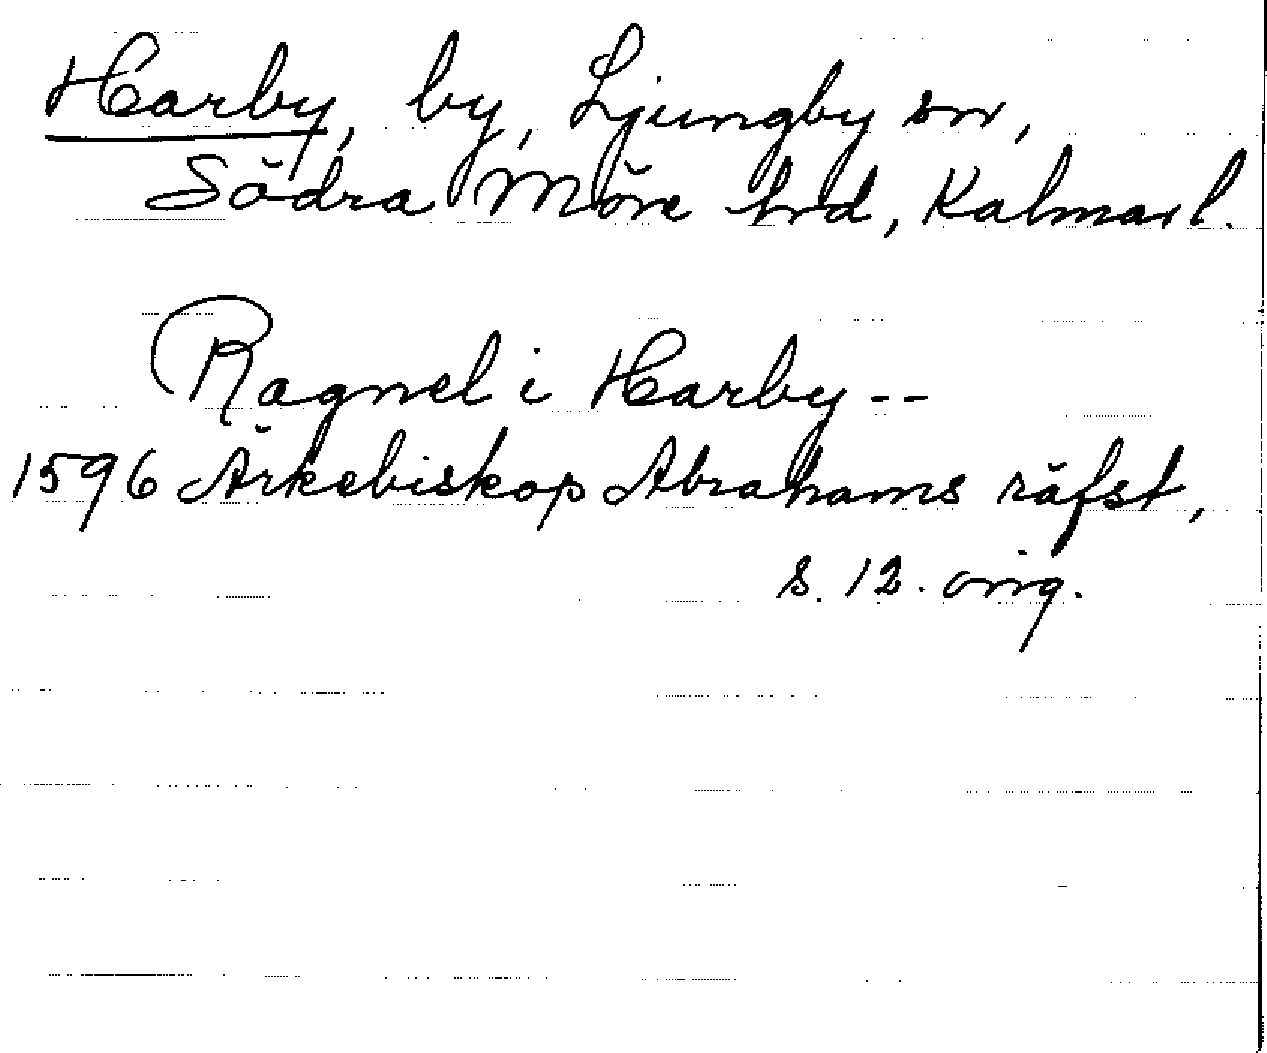 Harby, by, Ljungby sn,
Södra Möre hrd, Kalmar l.
Ragnel i Harby --
1596 Ärkebiskop Abrahams räfst,
s. 12. orig.